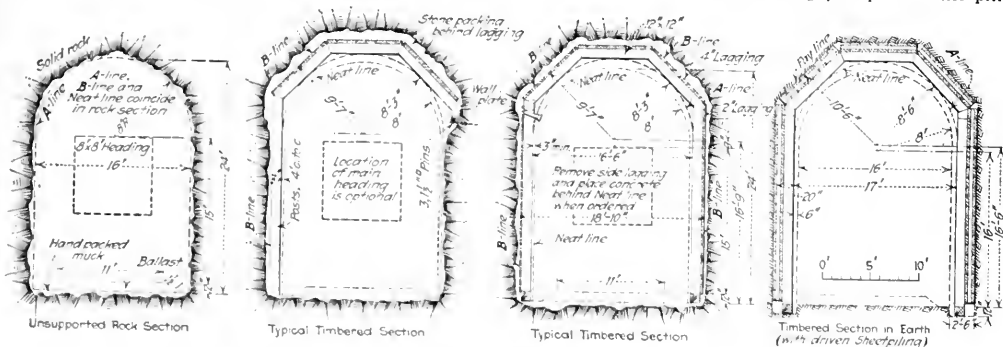 Solid rock
A-line
A-line,
B-line and
Neat line coincide
in rock section
8'R
8'x8' Heading
16'
24'
15'
Hand packed
muck
11'
Ballast
Unsupported Rock Section
B-line
Stone packing
behind lagging
Neat line
9'-7"
8'-3"
8'
Wall
plate
Posts, 4' c. to c.
Location
of main
heading
is optional
B-line
Typical Timbered Section
12"x12"
B-line
B-line
4" Lagging
Neat line
A-line
2" Lagging
9'-7"
8'-3"
8'
3" min.
16'-6"
Remove side lagging
and place concrete
behind Neat line
when ordered
18'-10"
B-line
B-line
Neat line
11'
15'
16'-9"
24'
Typical Timbered Section
Pay line
A-line
Neat line
10'-6"
8'-6"
8'
16'
17'
20"
6"
0' 5' 10'
16'
16'-6"
2'-6"
Timbered Section in Earth
(with driven Sheetpiling)